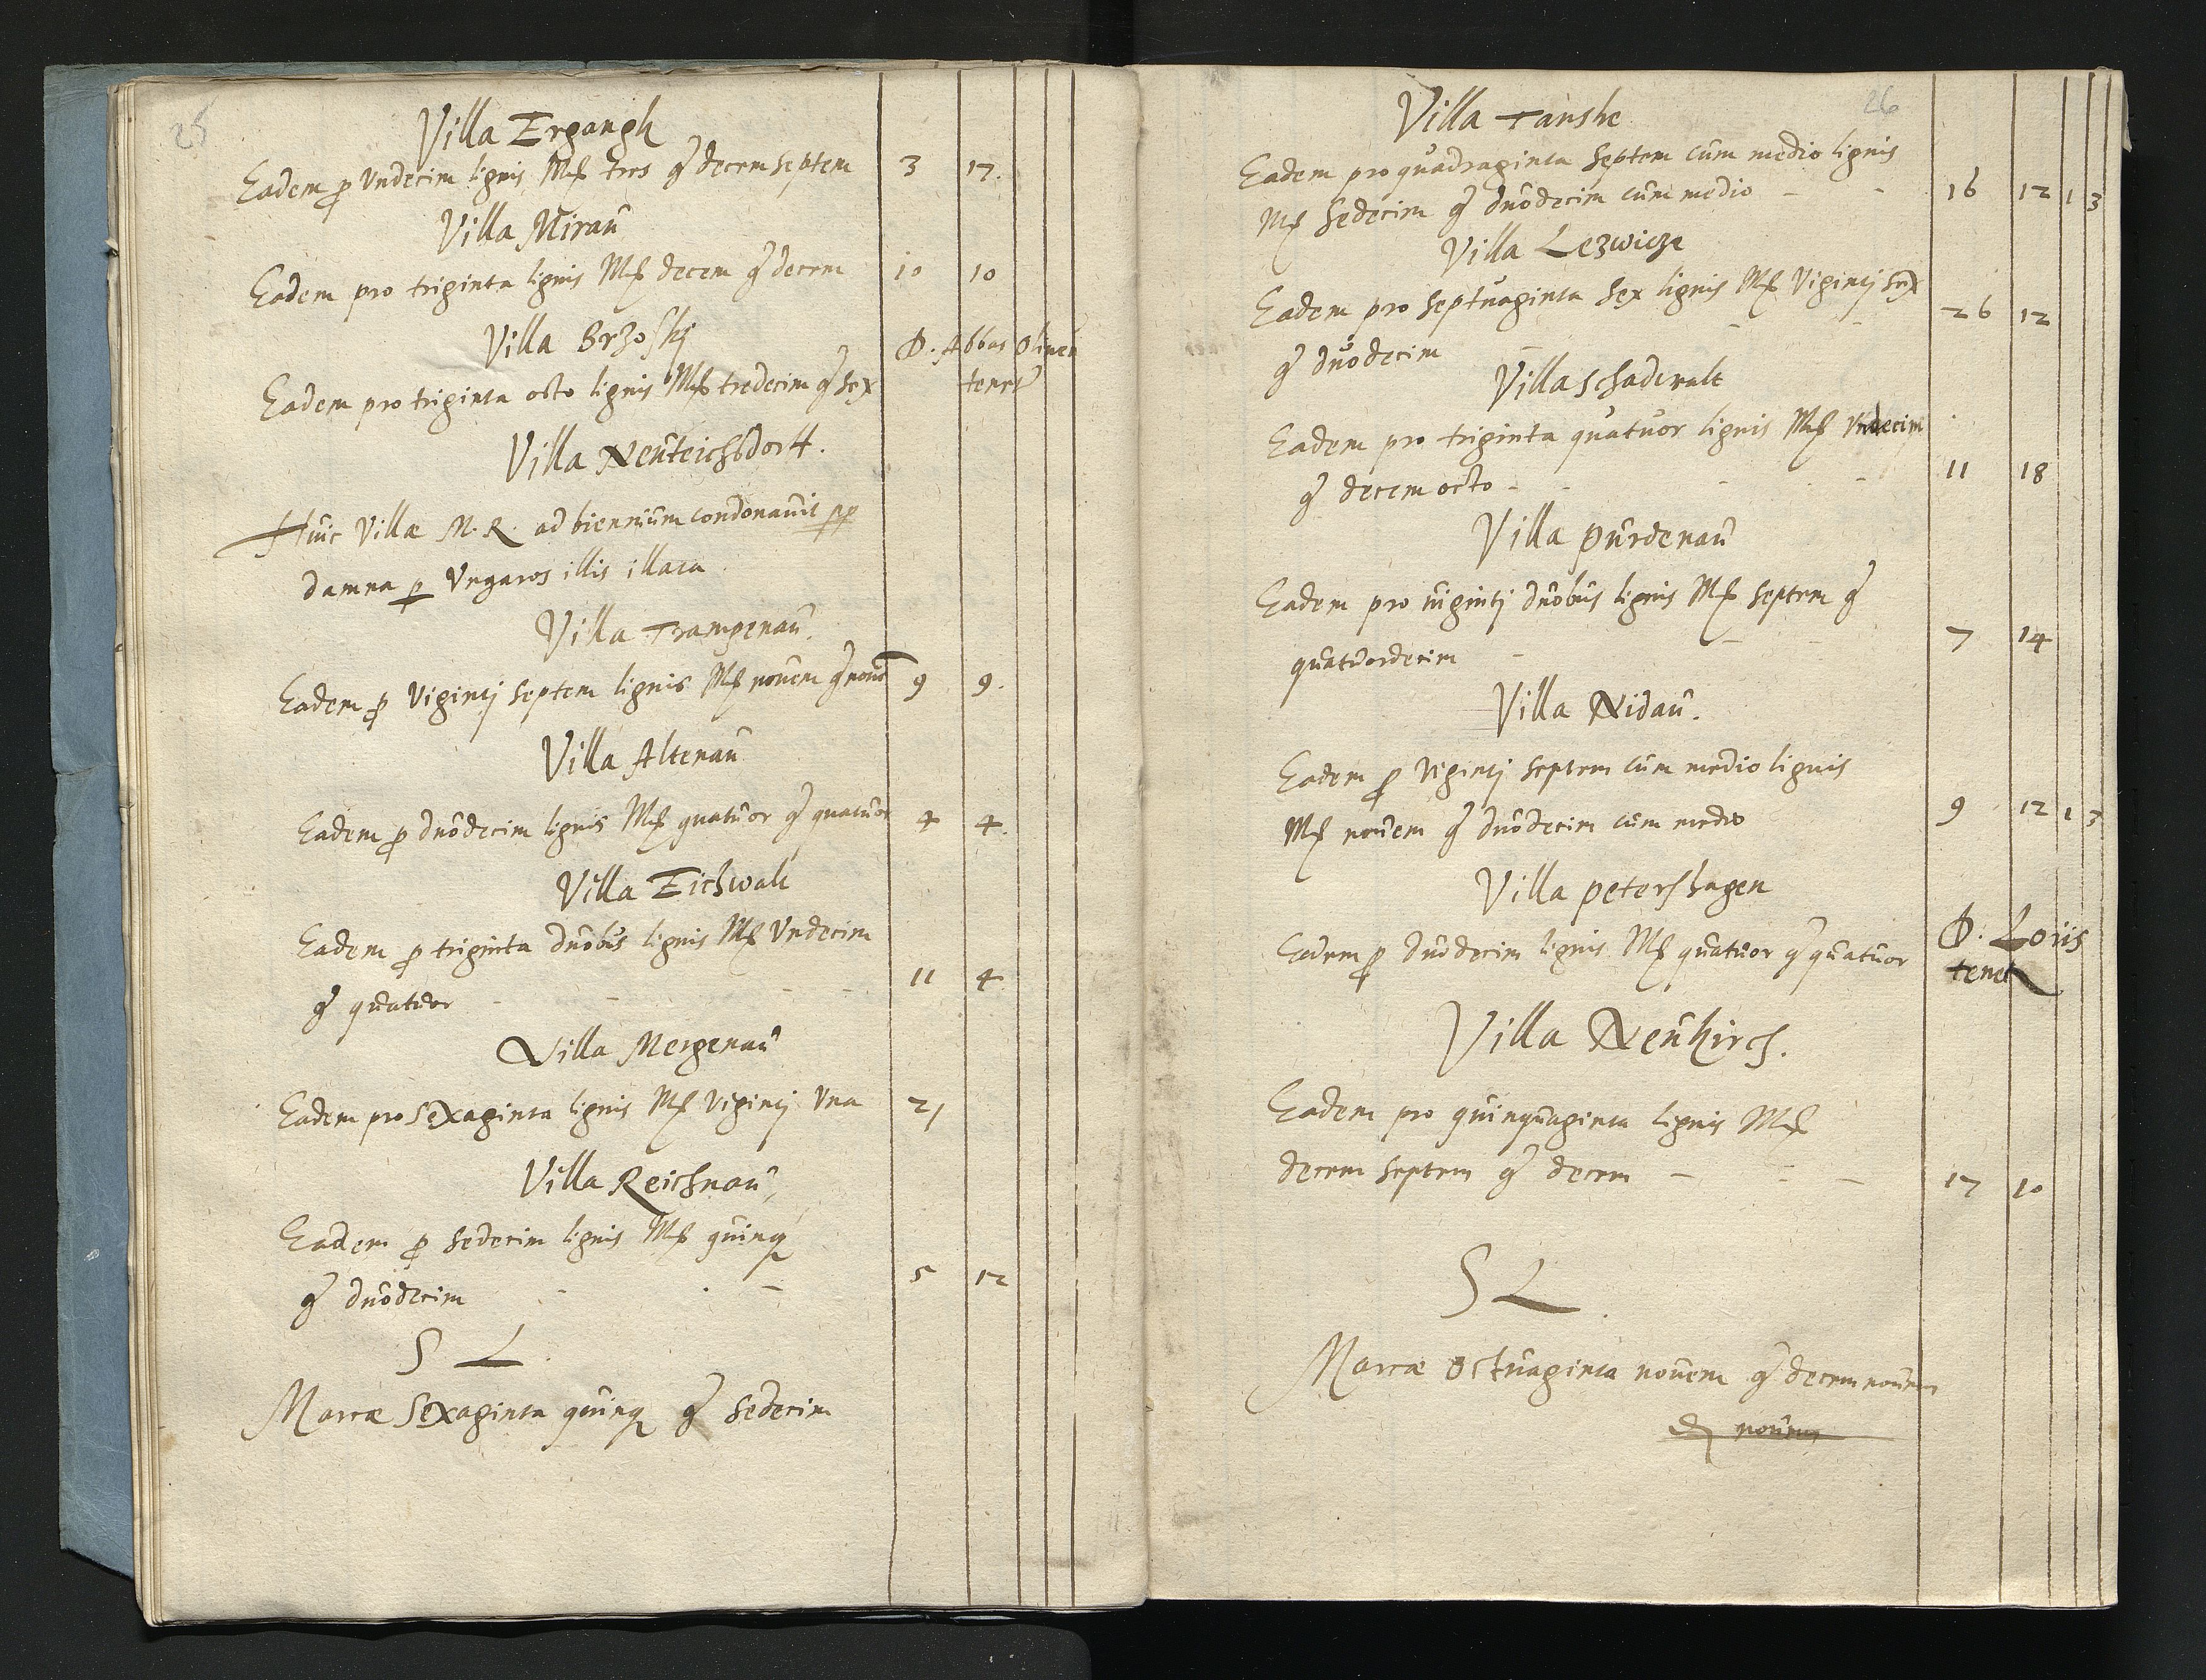 25
Villa Ergangh
Eadem p Vndecim lignis Mꝶ tres gꝶ decem septem 3 17.
Villa Miraŭ
Eadem pro triginta lignis Mꝶ decem gꝶ decem 10 10
Villa Brzoskj
D. Abbas Oliuen
Eadem pro triginta octo lignis Mꝶ tredecim gꝶ sex tenet
Villa Neŭteichsdorff.
Hŭic Villæ M. R. ad biennium condonauit pp
damna p Vngaros illis illata
Villa Trampenaŭ.
Eadem p Vigintj septem lignis Mꝶ noŭem gꝶ nouē 9 9.
Villa Altenaŭ
Eadem p dŭodecim lignis Mꝶ quatŭor gꝶ quatŭor 4 4.
Villa Eichwalt
Eadem p triginta dŭobŭs lignis Mꝶ Vndecim
gꝶ qŭatŭor - - - - 11 4
Villa Mergenaŭ
Eadem pro sexaginta lignis Mꝶ Vigintj Vna 21
Villa Reichnaŭ
Eadem p sedecim lignis Mꝶ qŭinqꝫ
gꝶ dŭodecim - - - 5 12
S L.
Marcæ sexaginta qŭinqꝫ gꝶ sedecim
26
Villa Tanshe
Eadem pro qŭadraginta septem cŭm medio lignis
Mꝶ sedecim gꝶ dŭodecim cŭm medio - - 16 12 1 3
Villa Lezwicze
Eadem pro septŭaginta sex lignis Mꝶ Vigintj sex
gꝶ dŭodecim - - - 26 12
Villa Schadwalt
Eadem pro triginta qŭatŭor lignis Mꝶ Vndecim
gꝶ decem octo - - - - 11 18
Villa Pŭrdenaŭ
Eadem pro ŭigintj dŭobŭs lignis Mꝶ septem gꝶ
qŭatŭordecim - - - 7 14
Villa Nidaŭ.
Eadem p Vigintj septem cŭm medio lignis
Mꝶ noŭem gꝶ dŭodecim cŭm medio 9 12 1 3
Villa Petershagen
Eadem p dŭodecim lignis Mꝶ qŭatŭor gꝶ qŭatŭor D. Loiis
tenet
Villa Neŭkirch.
Eadem pro qŭinqŭaginta lignis Mꝶ
decem septem gꝶ decem - - - 17 10
S L.
Marcæ octŭaginta noŭem gꝶ decem noŭem
noŭem